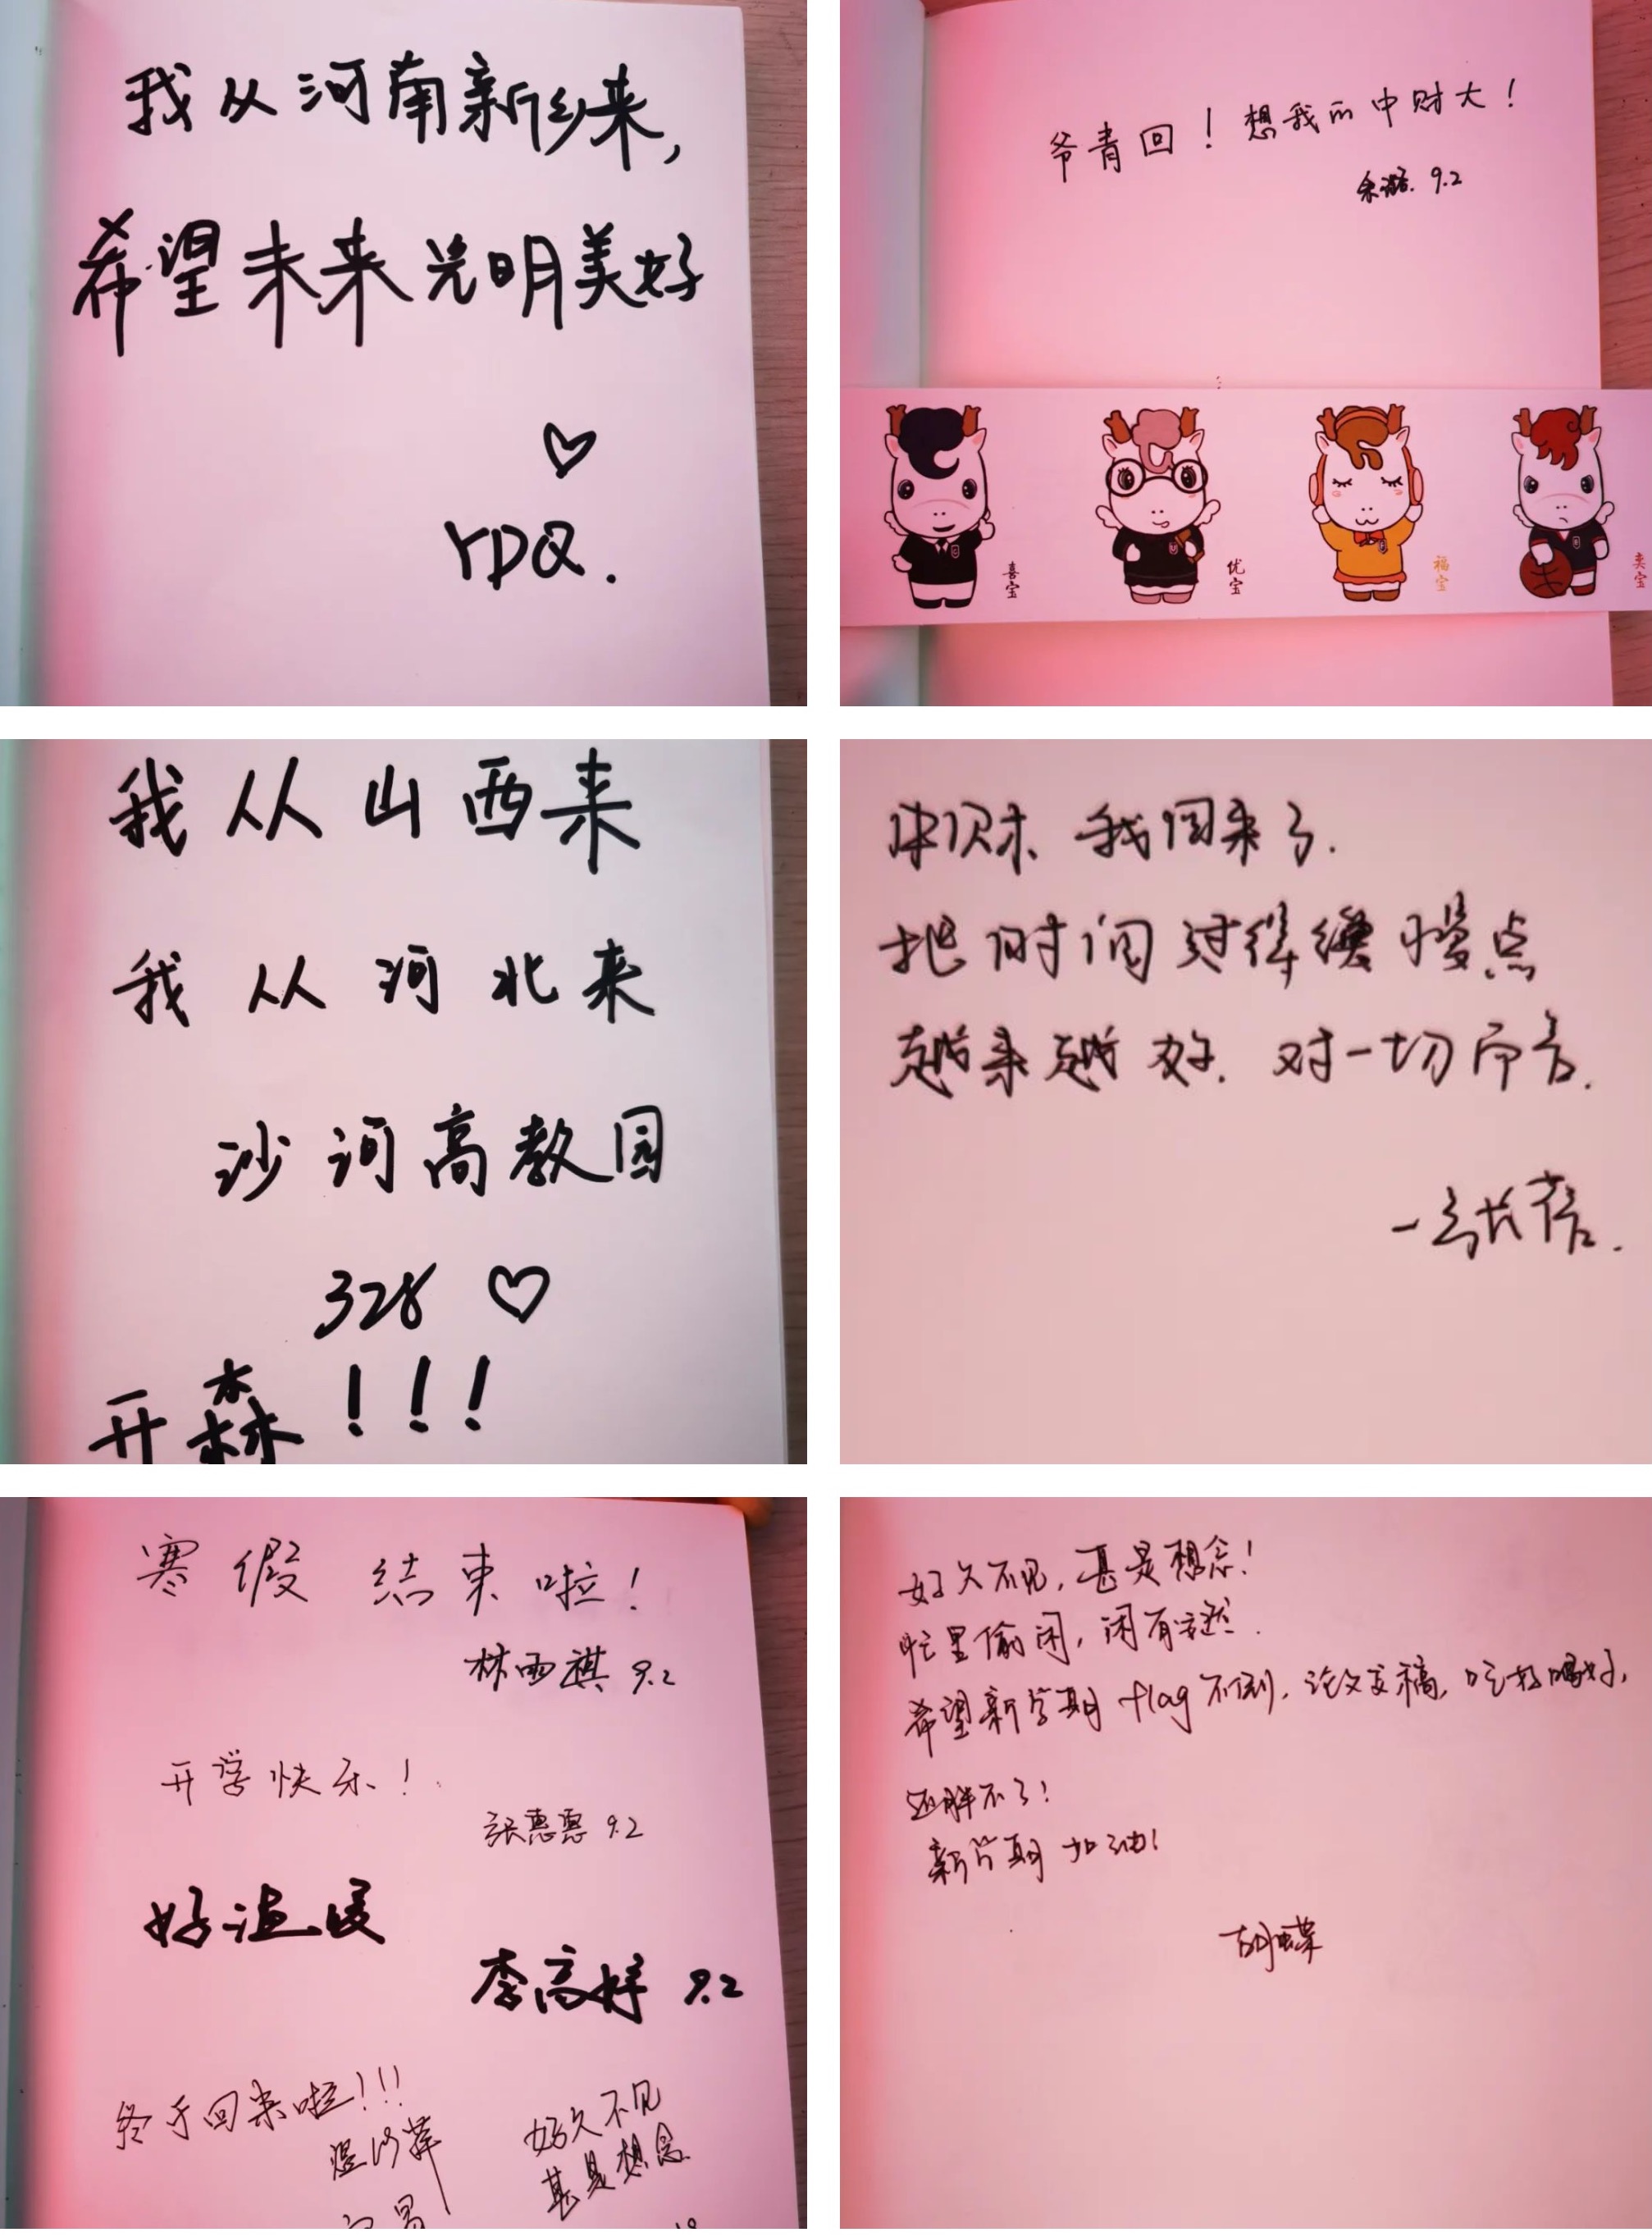 我从河南新乡来,
希望未来光明美好
♡
YDQ.
爷青回！想我的中财大！
9.2
喜宝
优宝
福宝
卖宝
我从山西来
我从河北来
沙河高教园
328 ♡
开森！！！
体贝木 我回来了.
把时间过得 慢点
越来越好. 对一切而言.
寒假结束啦！
林雨祺 9.2
开学快乐！
张惠惠 9.2
好温暖
李高好 9.2
终于回来啦!!!
好久不见
甚是想念
好久不见, 甚是想念!
忙里偷闲, 闲有
希望新学期flag不倒, 论文 稿, 吃好喝好,
还胖不了!
新学期加油!
胡蝶